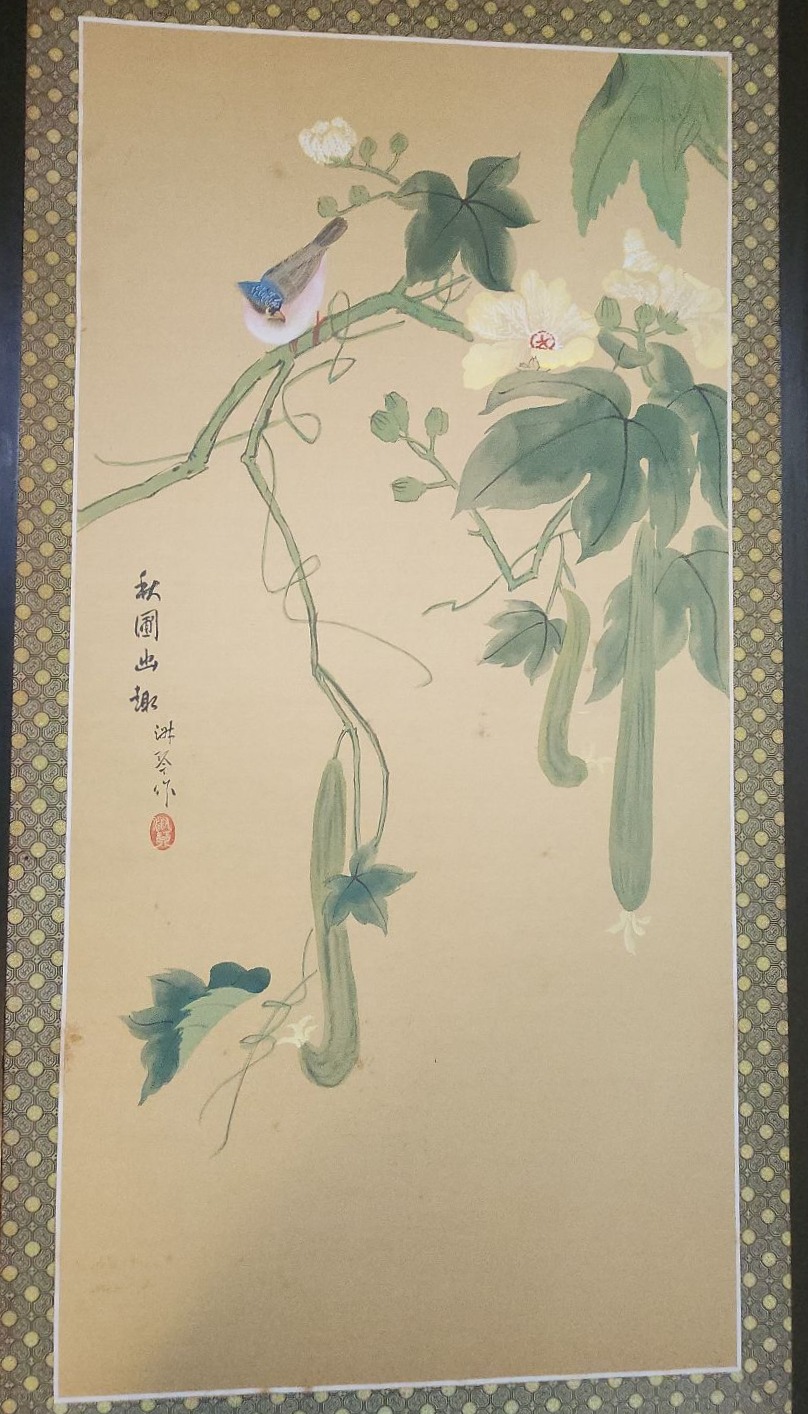 秋圃幽趣
淑琴作